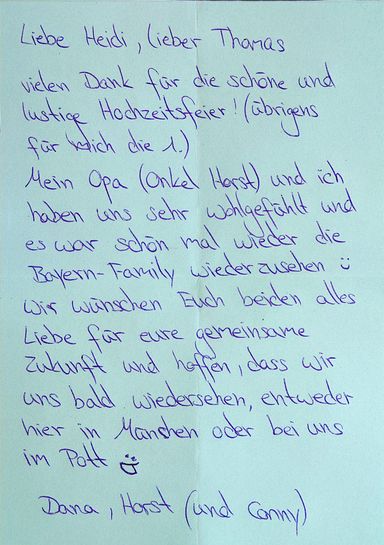 Liebe Heidi, lieber Thomas
vielen Dank für die schöne und
lustige Hochzeitsfeier! (übrigens
für mich die 1.)
Mein Opa (Onkel Horst) und ich
haben uns sehr wohlgefühlt und
es war schön mal wieder die
Bayern-Family wiederzusehen ☺
Wir wünschen Euch beiden alles
Liebe für eure gemeinsame
Zukunft und hoffen, dass wir
uns bald wiedersehen, entweder
hier in München oder bei uns
im Pott ☺
Dana, Horst (und Conny)